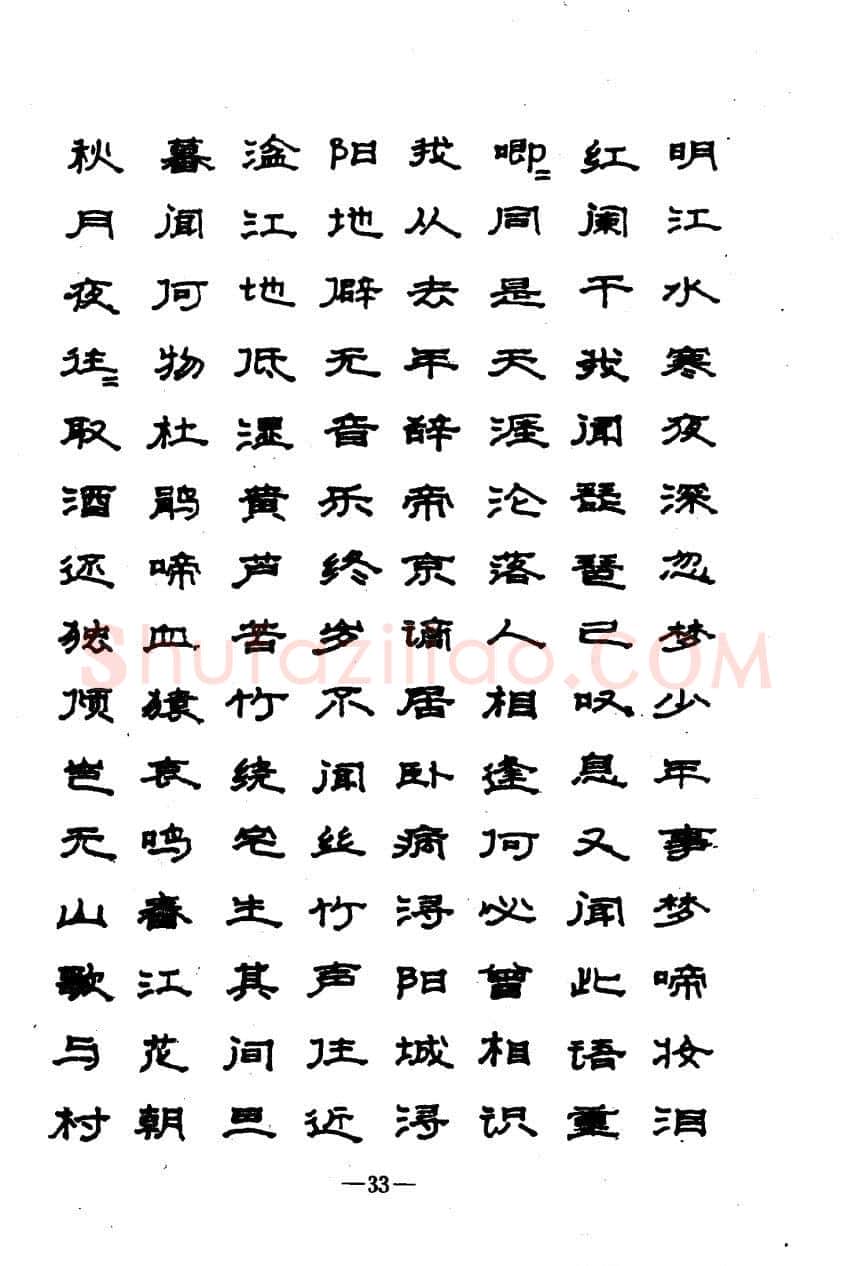 明江水寒夜深忽梦少年事梦啼妆泪
红阑干我闻琵琶已叹息又闻此语重
唧=同是天涯沦落人相逢何必曾相识
我从去年辞帝京谪居卧病浔阳城浔
阳地僻无音乐终岁不闻丝竹声住近
湓江地低湿黄芦苦竹绕宅生其间旦
暮闻何物杜鹃啼血猿哀鸣春江花朝
秋月夜往=取酒还独倾岂无山歌与村
—33—
Shufaziliao.COM